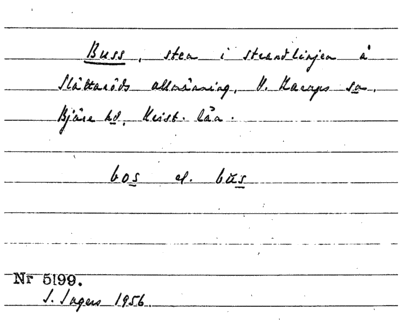 Buss, sten i strandlinjen å
Slättaröds allmänning, V. Karups sn,
Bjäre hd, Krist. län.
bos el. bus
Nr 5199.
S. Ingers 1956